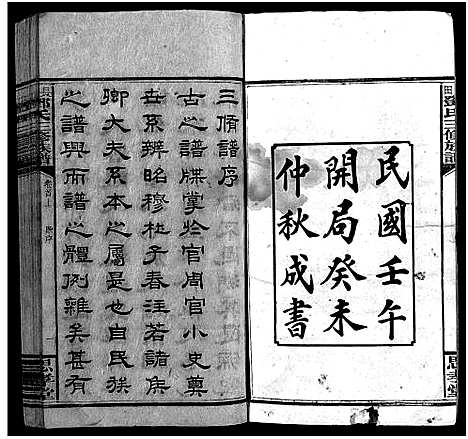 民國壬午
開局癸未
仲秋成書
鄧氏三修族譜
三脩譜序
古之譜牒掌於官周官小史奠
世系辨昭穆杜子春注若諸侯
卿大夫系本之屬是也自民族
之譜興而譜之體例雜矣甚有
鄧氏三修族譜
卷首上